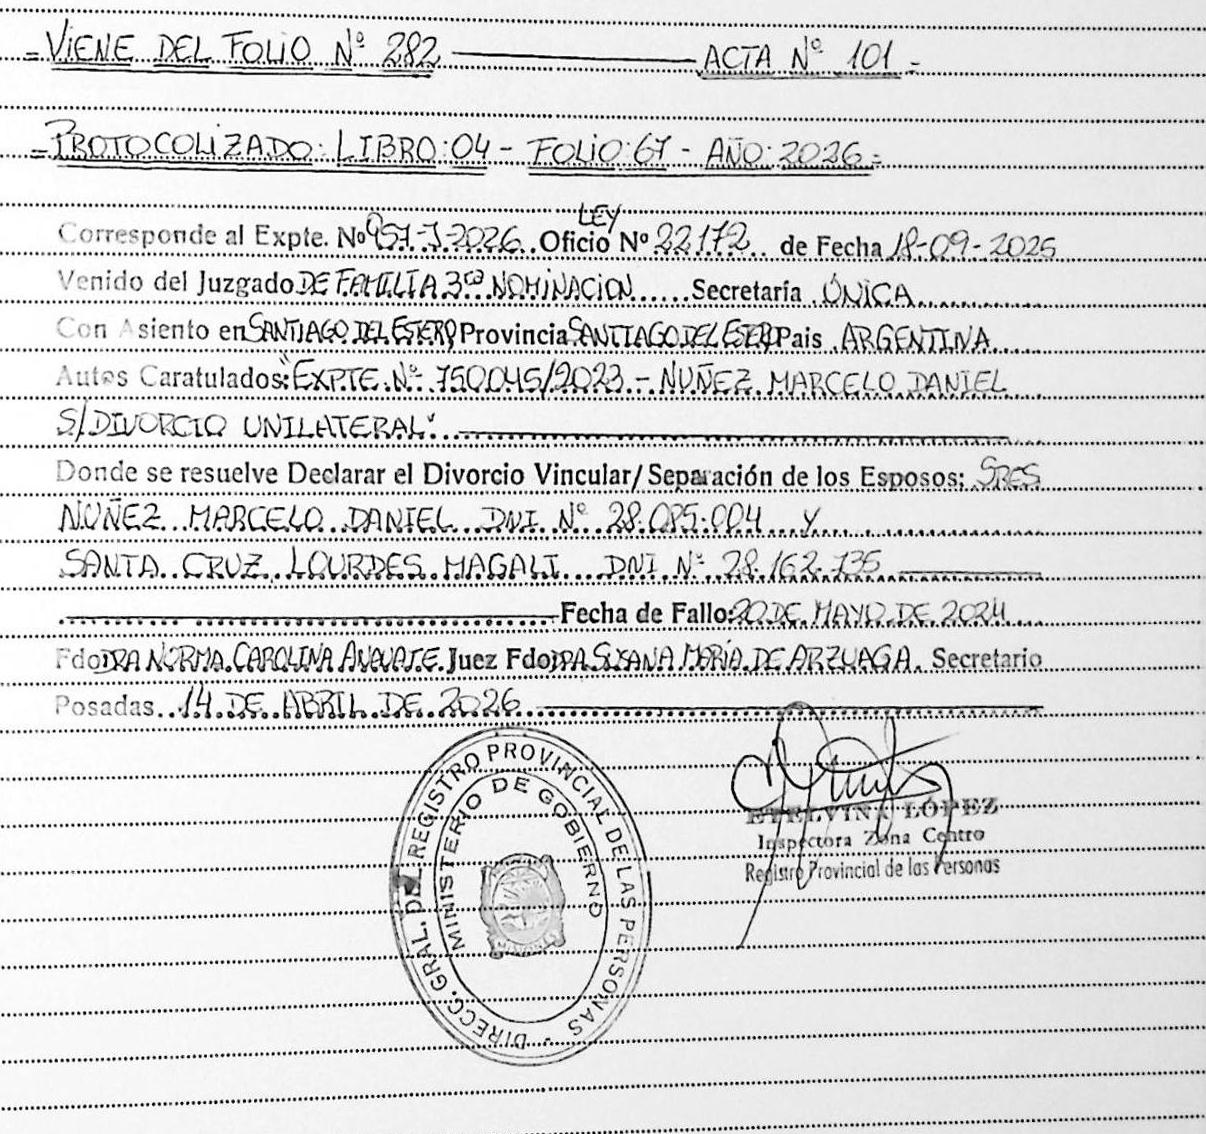 = VIENE DEL FOLIO Nº 282 ——— ACTA Nº 101 =
= PROTOCOLIZADO: LIBRO: 04 - FOLIO: 67 - AÑO: 2026 =
LEY
Corresponde al Expte. Nº 957-J-2026 Oficio Nº 22172 de Fecha 18-09-2025
Venido del Juzgado DE FAMILIA 3ra NOMINACION Secretaría ÚNICA
Con Asiento en SANTIAGO DEL ESTERO Provincia SANTIAGO DEL ESTERO Pais ARGENTINA
Autos Caratulados: "EXPTE. Nº 750045/2023 - NUÑEZ MARCELO DANIEL
S/DIVORCIO UNILATERAL".
Donde se resuelve Declarar el Divorcio Vincular/Separación de los Esposos: SRES
NUÑEZ MARCELO DANIEL DNI Nº 28.085.004 y
SANTA CRUZ LOURDES MAGALI DNI Nº 28.162.735
Fecha de Fallo: 20 DE MAYO DE 2024
Fdo: DRA NORMA CAROLINA Juez Fdo: DRA SUSANA MARÍA DE ARZUAGA. Secretario
Posadas 14 DE ABRIL DE 2026
DIRECC. GRAL. DEL REGISTRO PROVINCIAL DE LAS PERSONAS
MINISTERIO DE GOBIERNO
MISIONES
ETELVINA LÓPEZ
Inspectora Zona Centro
Registro Provincial de las Personas